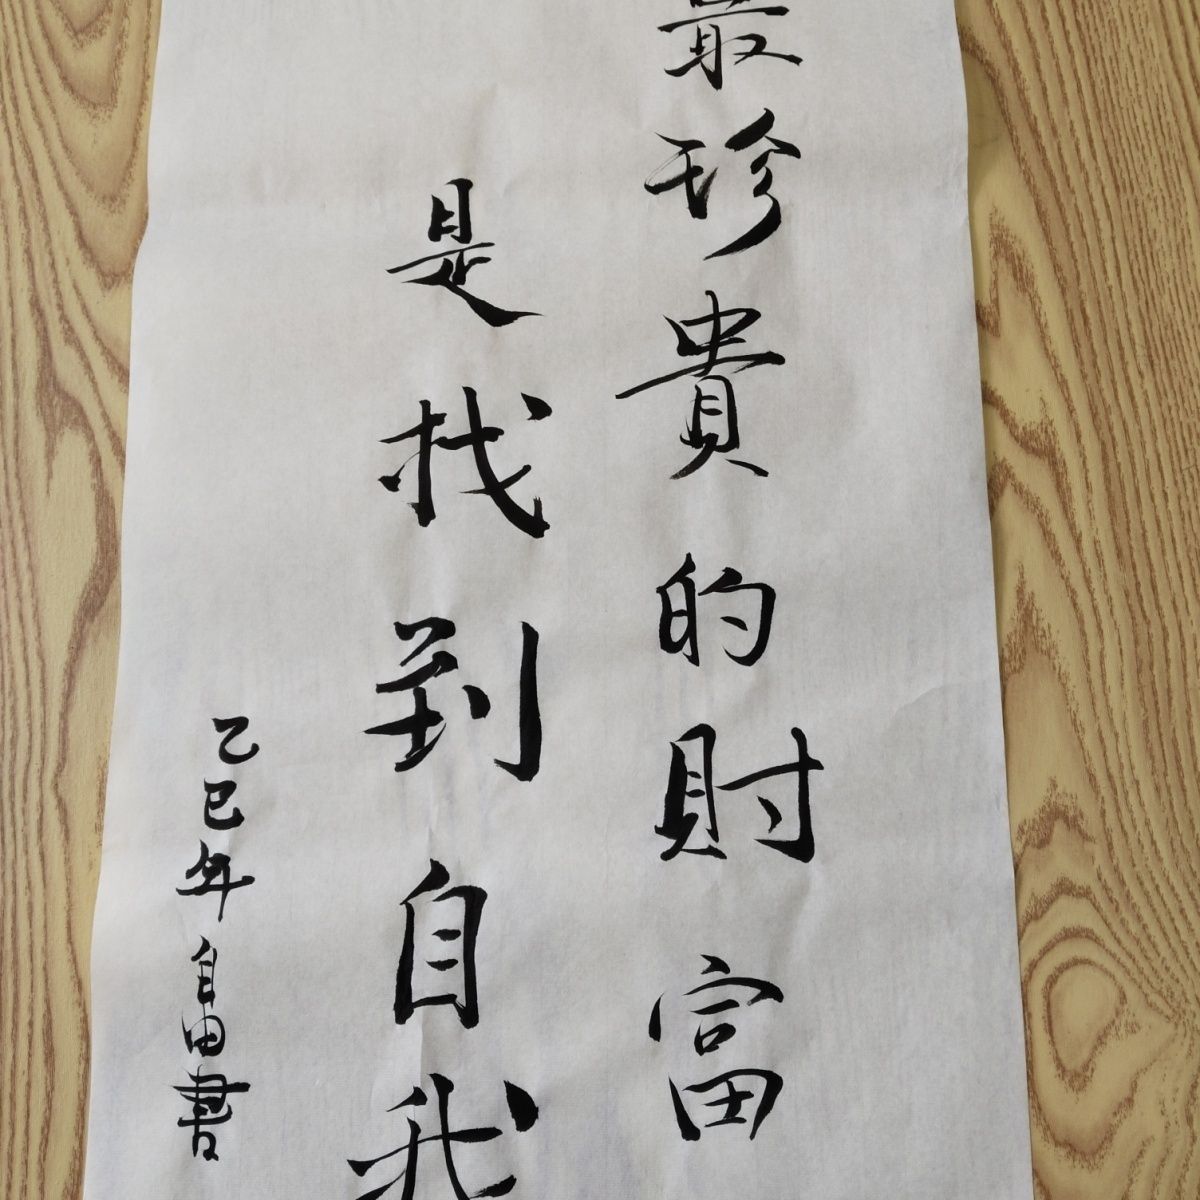 最珍貴的財富
是找到自我
乙巳年自由書